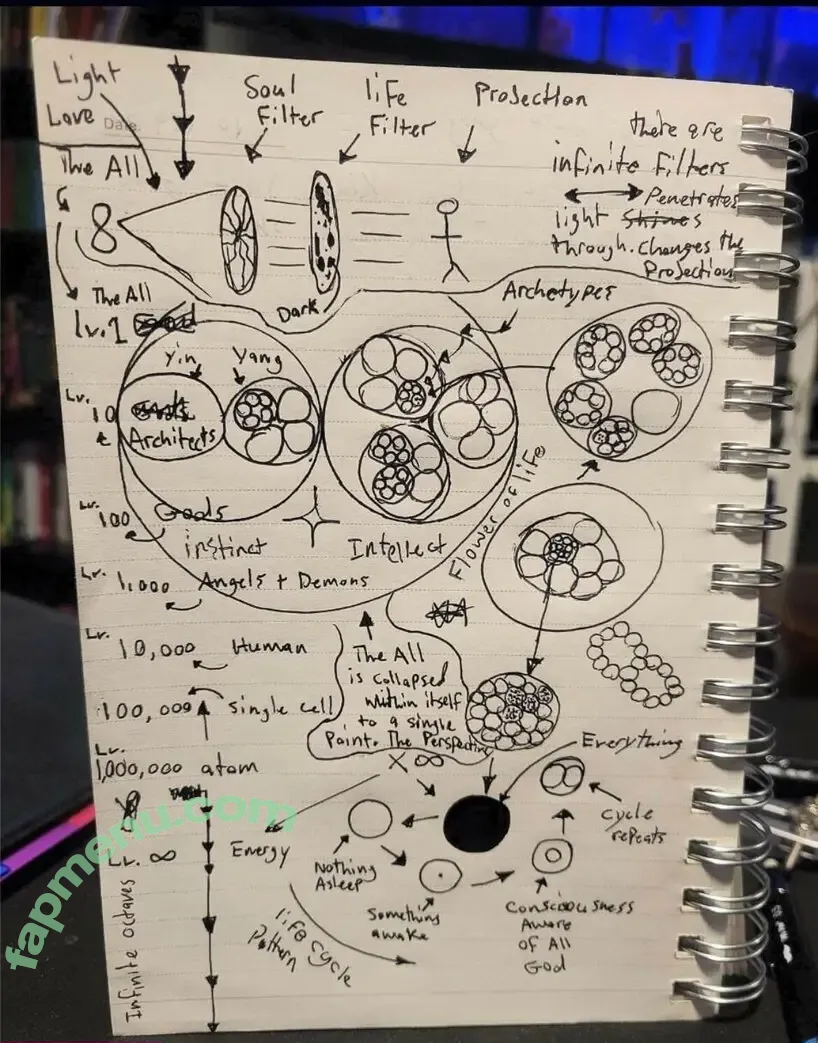 Light
Love
Date.
The All
Soul
Filter
life
Filter
Projection
there are
infinite filters
Penetrates
light Shines
through. Changes the
Projection
8
Dark
The All
Lv.1
Archetypes
Yin
Yang
Lv.
10
Architects
Lv.
100
Gods
instinct
Intellect
Flower of life
Lv.
1,000 Angels + Demons
Lv.
10,000 Human
100,000 Single cell
Lv.
1,000,000 atom
The All
is collapsed
within itself
to a single
Point. The Perspective
X ∞
Everything
cycle
repeats
Lv. ∞
Energy
Nothing
Asleep
Something
awake
Consciousness
Aware
of All
God
life cycle
Pattern
Infinite octaves
fapmenu.com